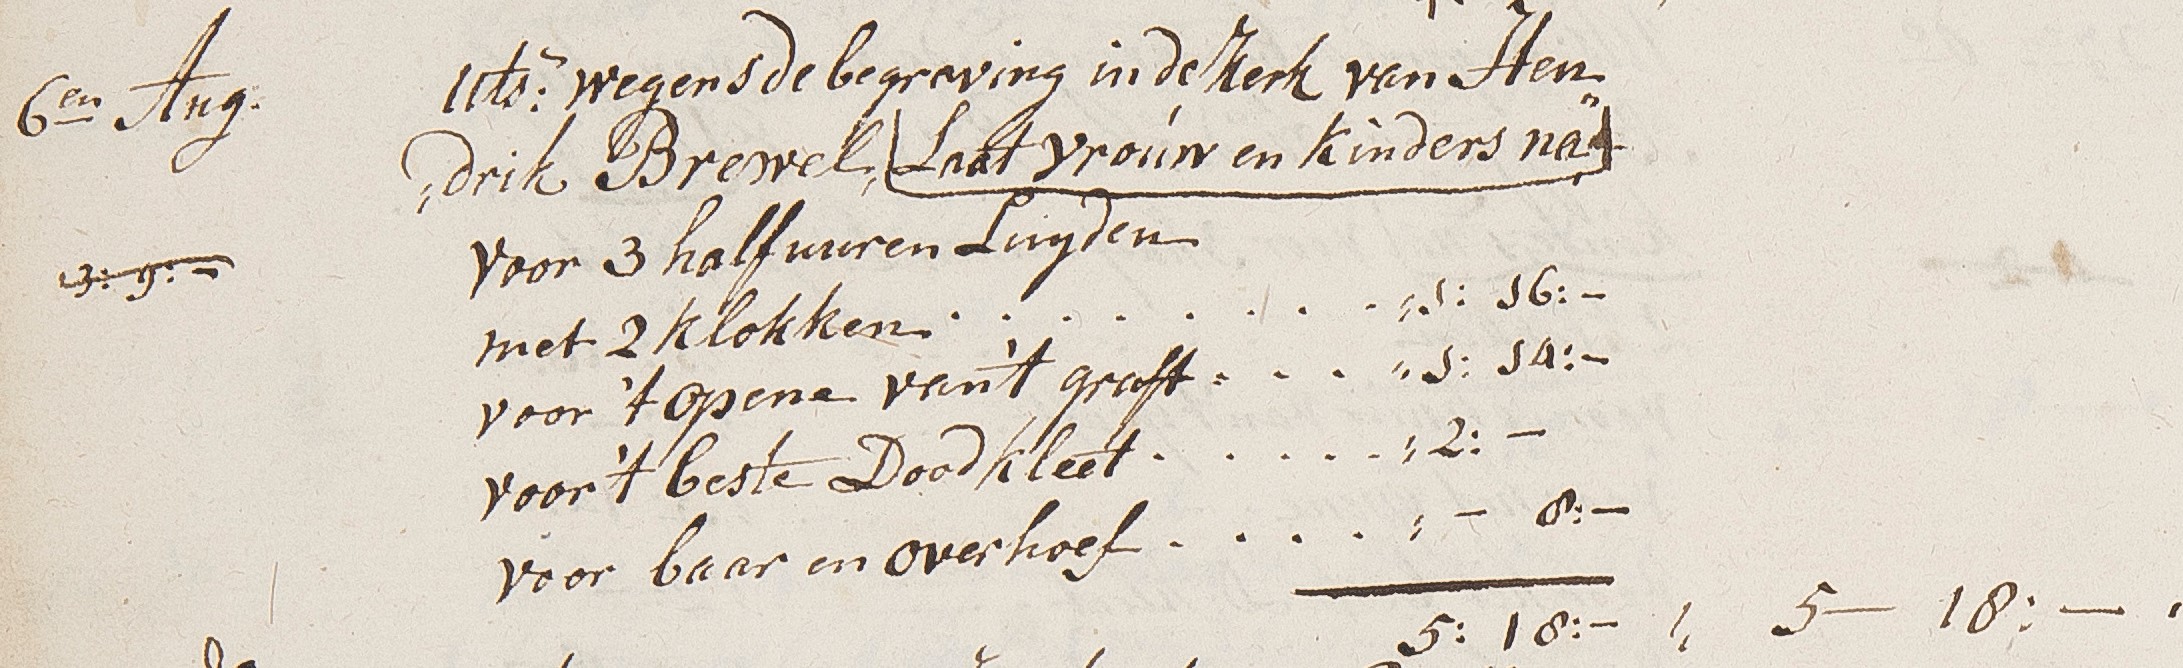 6en Aug. uts: wegens de begraving in de kerk van Hen„
„drik Brewel, Laat vrouw en kinders na
voor 3 halfuuren Luyden
3: 9: -
met 2 klokken . . . . . . . . . „ 1: 16: -
voor 't opene van't graft . . . . „ 1: 14: -
voor 't beste Doodkleet . . . . . . „ 2: -
voor baar en overhoef . . . . . „ - 8: -
5: 18: - „ 5 - 18: -